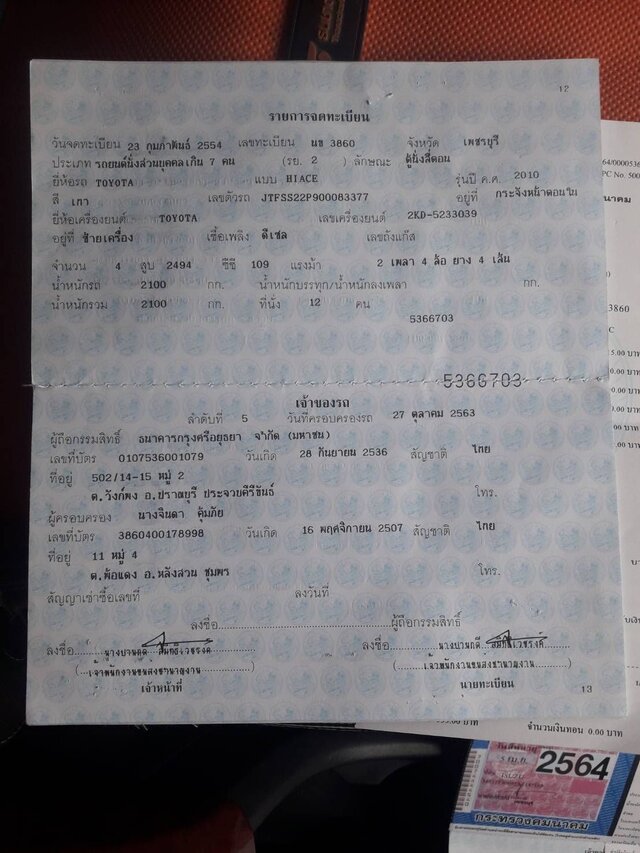 12
รายการจดทะเบียน
วันจดทะเบียน 23 กุมภาพันธ์ 2554 เลขทะเบียน นข 3860 จังหวัด เพชรบุรี
ประเภท รถยนต์นั่งส่วนบุคคลเกิน 7 คน (รย. 2 ) ลักษณะ ตู้นั่งสี่ตอน
ยี่ห้อรถ TOYOTA แบบ HIACE รุ่นปี ค.ศ. 2010
สี เทา เลขตัวรถ JTFSS22P900083377 อยู่ที่ กระจังหน้าตอนใน
ยี่ห้อเครื่องยนต์ TOYOTA เลขเครื่องยนต์ 2KD-5233039
อยู่ที่ ซ้ายเครื่อง เชื้อเพลิง ดีเซล เลขถังแก๊ส
จำนวน 4 สูบ 2494 ซีซี 109 แรงม้า 2 เพลา 4 ล้อ ยาง 4 เส้น
น้ำหนักรถ 2100 กก. น้ำหนักบรรทุก/น้ำหนักลงเพลา กก.
น้ำหนักรวม 2100 กก. ที่นั่ง 12 คน
5366703
5366703
เจ้าของรถ
ลำดับที่ 5 วันที่ครอบครองรถ 27 ตุลาคม 2563
ผู้ถือกรรมสิทธิ์ ธนาคารกรุงศรีอยุธยา จำกัด (มหาชน)
เลขที่บัตร 0107536001079 วันเกิด 28 กันยายน 2536 สัญชาติ ไทย
ที่อยู่ 502/14-15 หมู่ 2
ต.วังก์พง อ.ปราณบุรี ประจวบคีรีขันธ์ โทร.
ผู้ครอบครอง นางจินดา คุ้มภัย
เลขที่บัตร 3860400178998 วันเกิด 16 พฤศจิกายน 2507 สัญชาติ ไทย
ที่อยู่ 11 หมู่ 4
ต.พ้อแดง อ.หลังสวน ชุมพร โทร.
สัญญาเช่าซื้อเลขที่ ลงวันที่
ลงชื่อ ผู้ถือกรรมสิทธิ์
ลงชื่อ ลงชื่อ
(เจ้าพนักงานขนส่งชำนาญงาน) (เจ้าพนักงานขนส่งชำนาญงาน)
เจ้าหน้าที่ นายทะเบียน
13
จำนวนเงินทอน 0.00 บาท
2564
กระทรวงคมนาคม